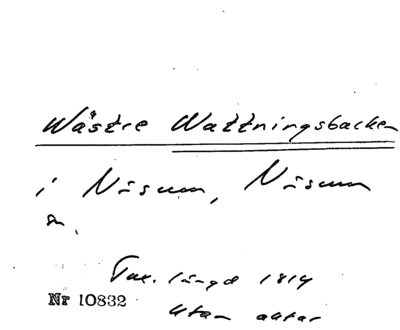 Wästre Wattningsbacken
i Näsum, Näsum
sn.
Tax. längd 1814
Nr 10832
utan aktar